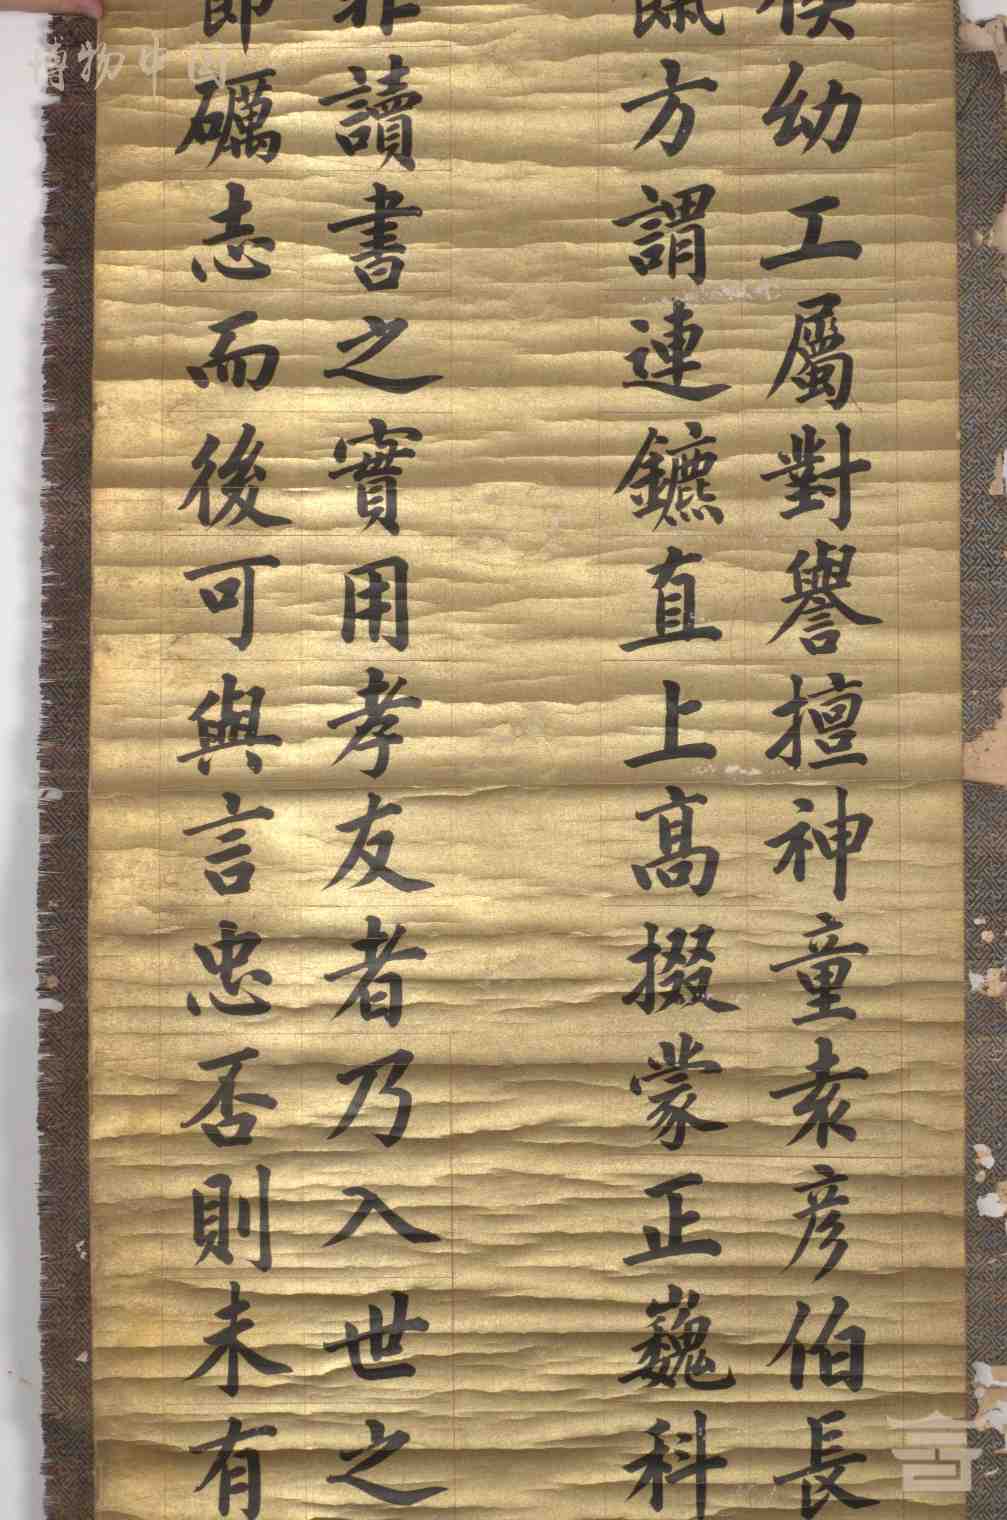 侯幼工屬對譽擅神童袁彥伯長
方謂連鑣直上高掇蒙正巍科
非讀書之實用孝友者乃入世之
節礪志而後可與言忠否則未有
博物中国